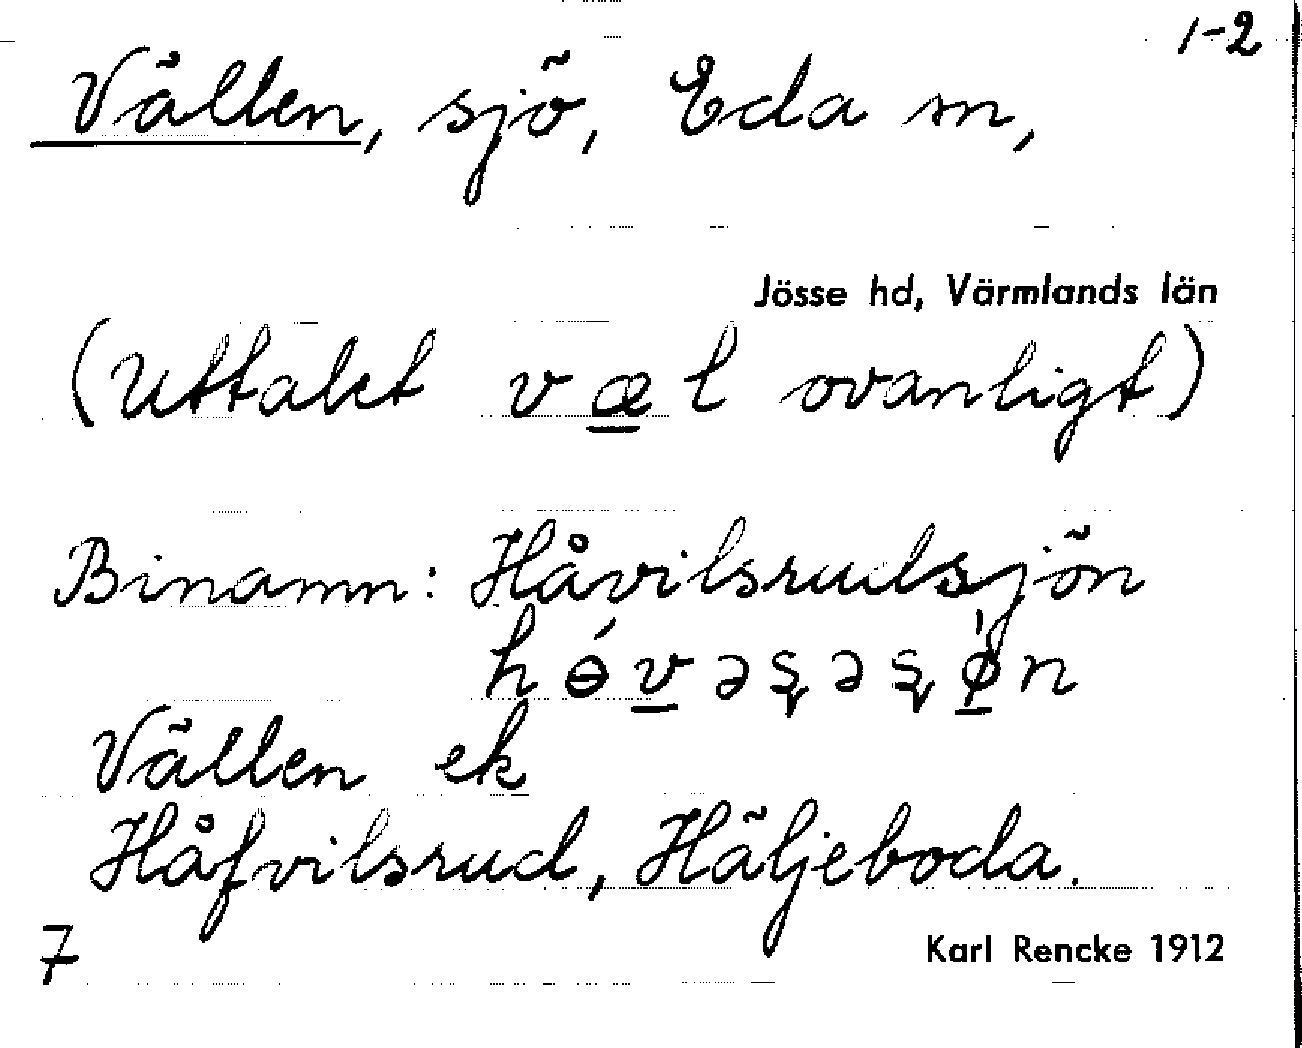 1-2
Vällen, sjö, Eda sn,
Jösse hd, Värmlands län
(Uttalet væl ovanligt)
Binamn: Håvilsrudsjön
hɵ́vəʂəʂǿn
Vällen ek
Håfvilsrud, Häljeboda.
7
Karl Rencke 1912